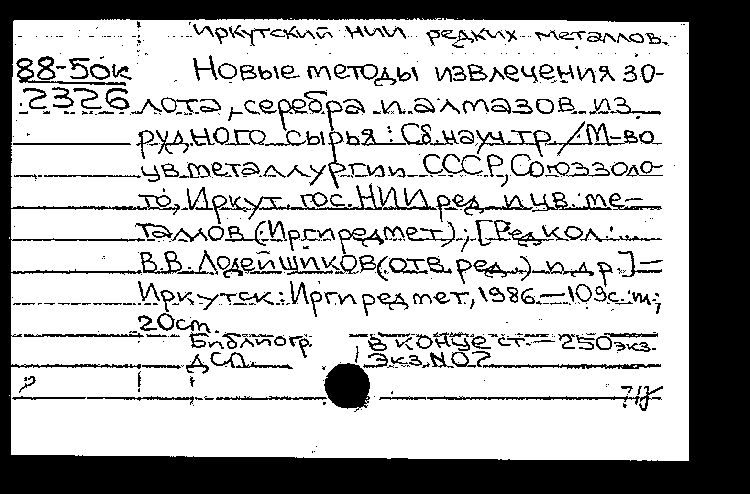 Иркутский НИИ редких металлов.
88-50к Новые методы извлечения зо-
2326 лота, серебра и алмазов из
рудного сырья: Сб.науч.тр./М-во
цв.металлургии СССР, Союззоло-
то, Иркут. гос. НИИ ред. и цв. ме-
таллов (Иргиредмет); [Редкол.:...
В.В. Лодейщиков (отв.ред.) и др.]—
Иркутск: Иргиредмет, 1986.—109с.:
20см.
Библиогр. в конце ст.— 250экз.
ДСП. Экз.N07